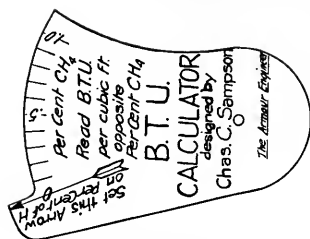 1.0
.5
0
Per Cent CH4
Read B.T.U.
per cubic ft.
opposite
Per Cent CH4
B. T. U.
CALCULATOR
designed by
Chas. C. Sampson
The Armour Engineer
Set this Arrow
on
Per Cent of H